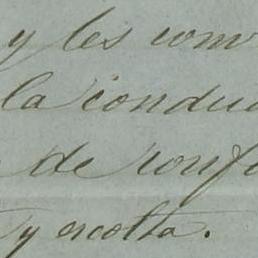 y les conv
la conduc
de conf
y escolta.